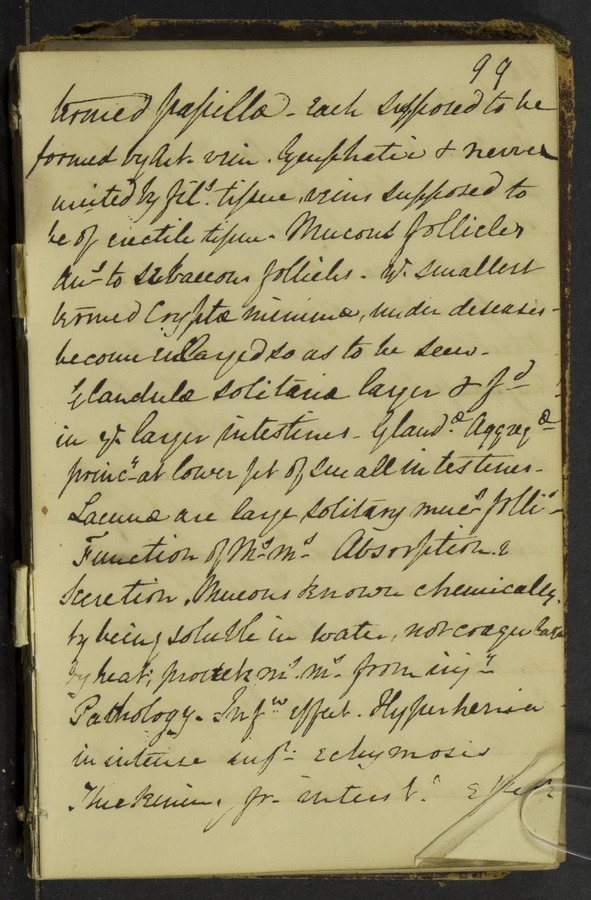 99
termed papillæ - Each supposed to be
formed by Art. vein. lymphatic & nerve
united by fil.s tissue, veins supposed to
be of erectile tissue - Mucous follicles
an.s to sebaceous follicles - ye smallest
termed Cryptæ minimæ, under diseases
become enlarged so as to be seen -
Glandulæ solitariæ larger & f.d
in ye larger intestines - Gland.æ Aggreg.æ
princ.y at lower pt of small intestines -
Lacunæ are large solitary muc.s folli.s
Function of M.s m.s Absorption &
Secretion. Mucous known chemically
by being soluble in water, not coagulable
by heat; protects m.s m.s from inj.y
Pathology - Inf.n effect. Hyperhemia
in intense inf.n Echymosis
Thickening, fr. interst.l